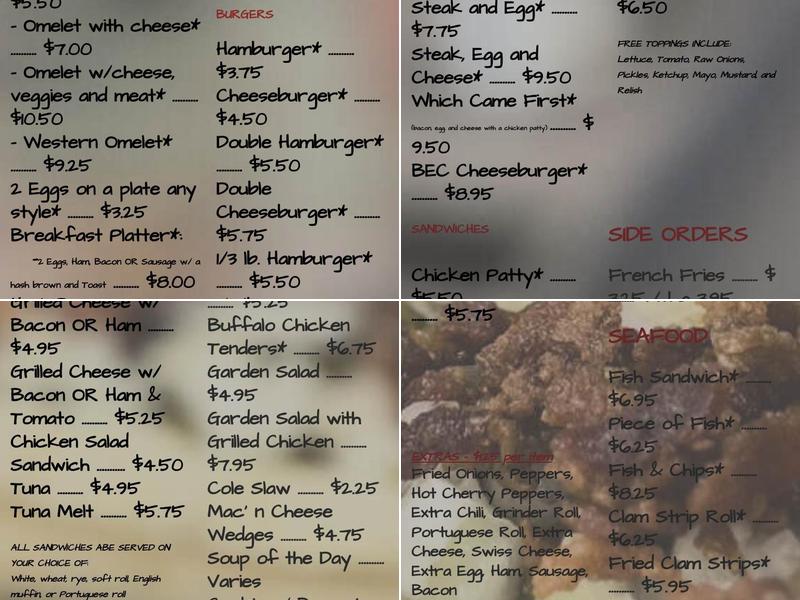 $5.50
- Omelet with cheese*
.......... $7.00
- Omelet w/cheese,
veggies and meat* ..........
$10.50
- Western Omelet*
.......... $9.25
2 Eggs on a plate any
style* .......... $3.25
Breakfast Platter*:
-2 Eggs, Ham, Bacon OR Sausage w/ a
hash brown and Toast .......... $8.00
BURGERS
Hamburger* ..........
$3.75
Cheeseburger* ..........
$4.50
Double Hamburger*
.......... $5.50
Double
Cheeseburger* ..........
$5.75
1/3 lb. Hamburger*
.......... $5.50
Steak and Egg* ..........
$7.75
Steak, Egg and
Cheese* .......... $9.50
Which Came First*
(bacon, egg and cheese with a chicken patty) .......... $
9.50
BEC Cheeseburger*
.......... $8.95
SANDWICHES
Chicken Patty* ..........
$5.50
$6.50
FREE TOPPINGS INCLUDE:
Lettuce, Tomato, Raw Onions,
Pickles, Ketchup, Mayo, Mustard, and
Relish
SIDE ORDERS
French Fries .......... $
Grilled Cheese w/
Bacon OR Ham ..........
$4.95
Grilled Cheese w/
Bacon OR Ham &
Tomato .......... $5.25
Chicken Salad
Sandwich .......... $4.50
Tuna .......... $4.95
Tuna Melt .......... $5.75
ALL SANDWICHES ABE SERVED ON
YOUR CHOICE OF:
White, wheat, rye, soft roll, English
muffin, or Portuguese roll
.......... $5.25
Buffalo Chicken
Tenders* .......... $6.75
Garden Salad ..........
$4.95
Garden Salad with
Grilled Chicken ..........
$7.95
Cole Slaw .......... $2.25
Mac' n Cheese
Wedges .......... $4.75
Soup of the Day ..........
Varies
.......... $5.75
EXTRAS - $1.25 per item
Fried Onions, Peppers,
Hot Cherry Peppers,
Extra Chili, Grinder Roll,
Portuguese Roll, Extra
Cheese, Swiss Cheese,
Extra Egg, Ham, Sausage,
Bacon
SEAFOOD
Fish Sandwich* ..........
$6.95
Piece of Fish* ..........
$6.25
Fish & Chips* ..........
$8.25
Clam Strip Roll* ..........
$6.25
Fried Clam Strips*
.......... $5.95